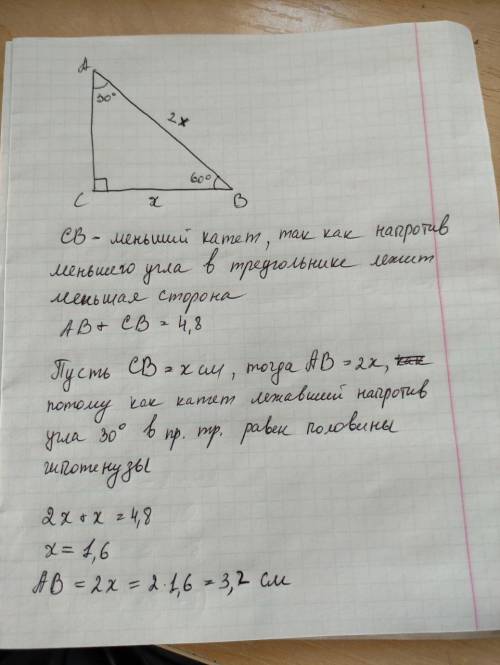 A
30°
2x
60°
C
x
B
CB - меньший катет, так как напротив
меньшего угла в треугольнике лежит
меньшая сторона
AB + CB = 4,8
Пусть CB = x см, тогда AB = 2x,
потому как катет лежавший напротив
угла 30° в пр. тр. равен половины
гипотенузы
2x + x = 4,8
x = 1,6
AB = 2x = 2·1,6 = 3,2 см